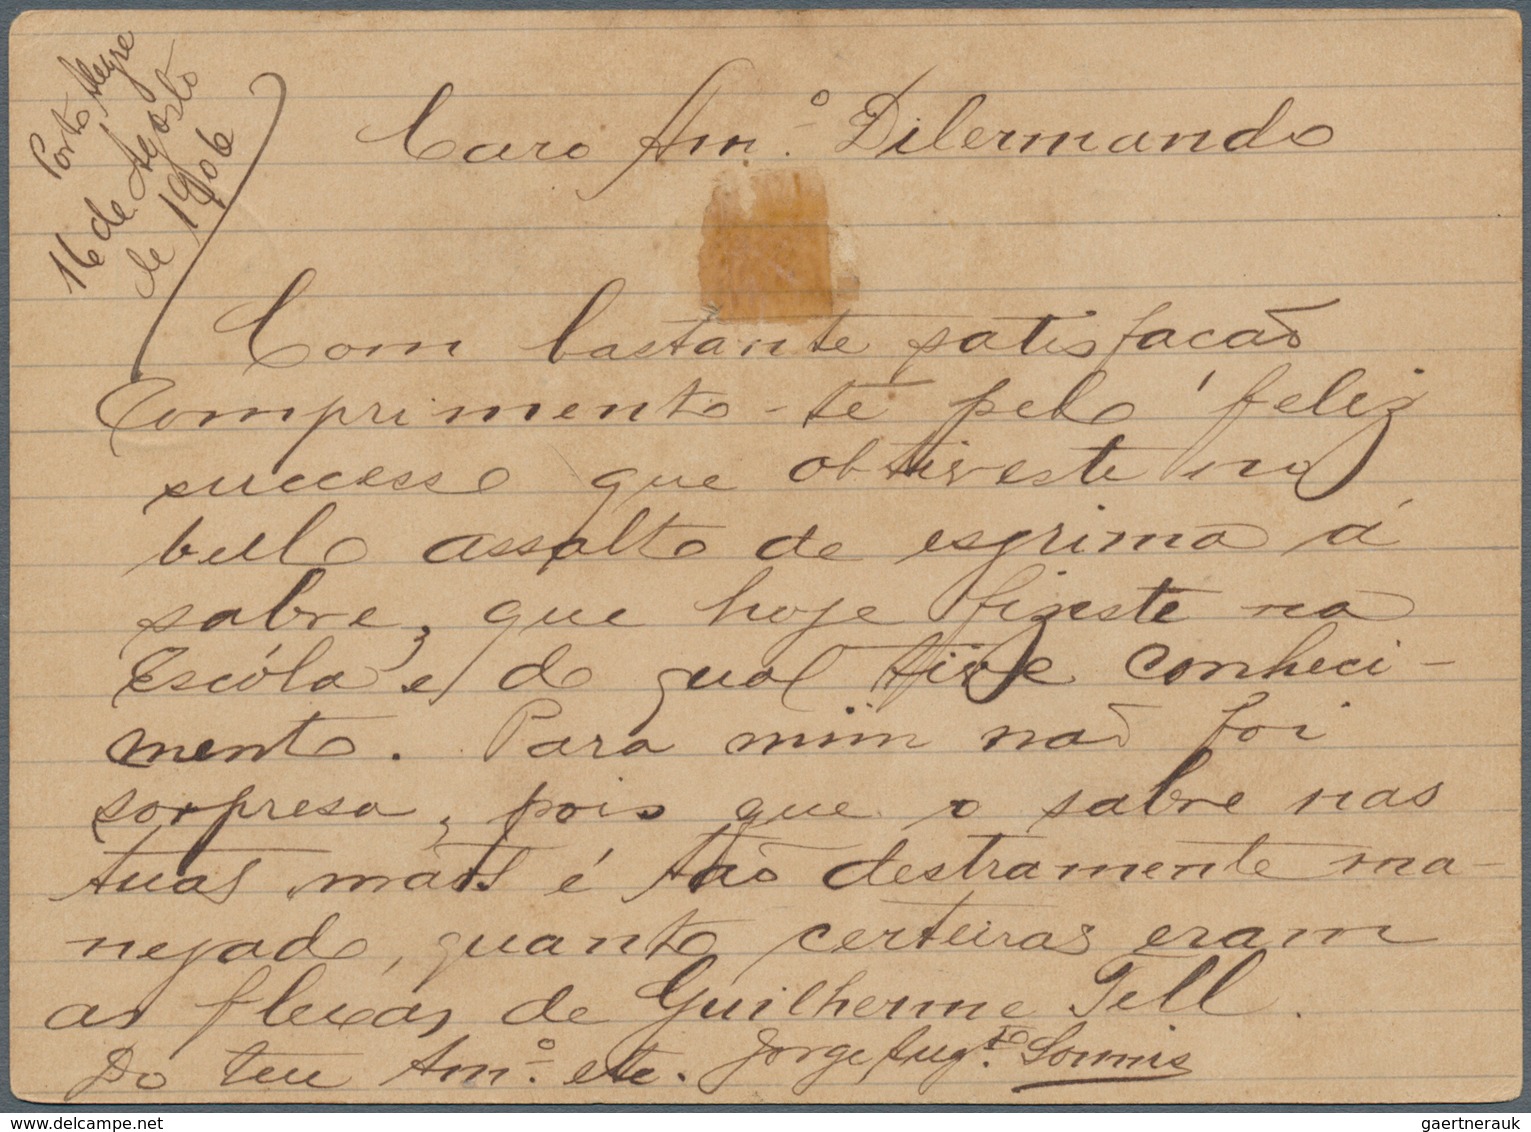 Porto Alegre
16 de Agosto
de 1906
Caro Am.º Dilermando
Com bastante satisfacão
comprimento-te pelo feliz
successo que obtiveste no
bello assalto de esgrima á
sabre, que hoje fizeste na
Escóla e do qual tive conheci-
mento. Para mim não foi
sorpresa, pois que o sabre nas
tuas mãos é tão destramente ma-
nejado, quanto certeiras eram
as flexas de Guilherme Tell.
Do teu Am.º etc. Jorge Aug.to
gaertnerauk @ delcampe.net